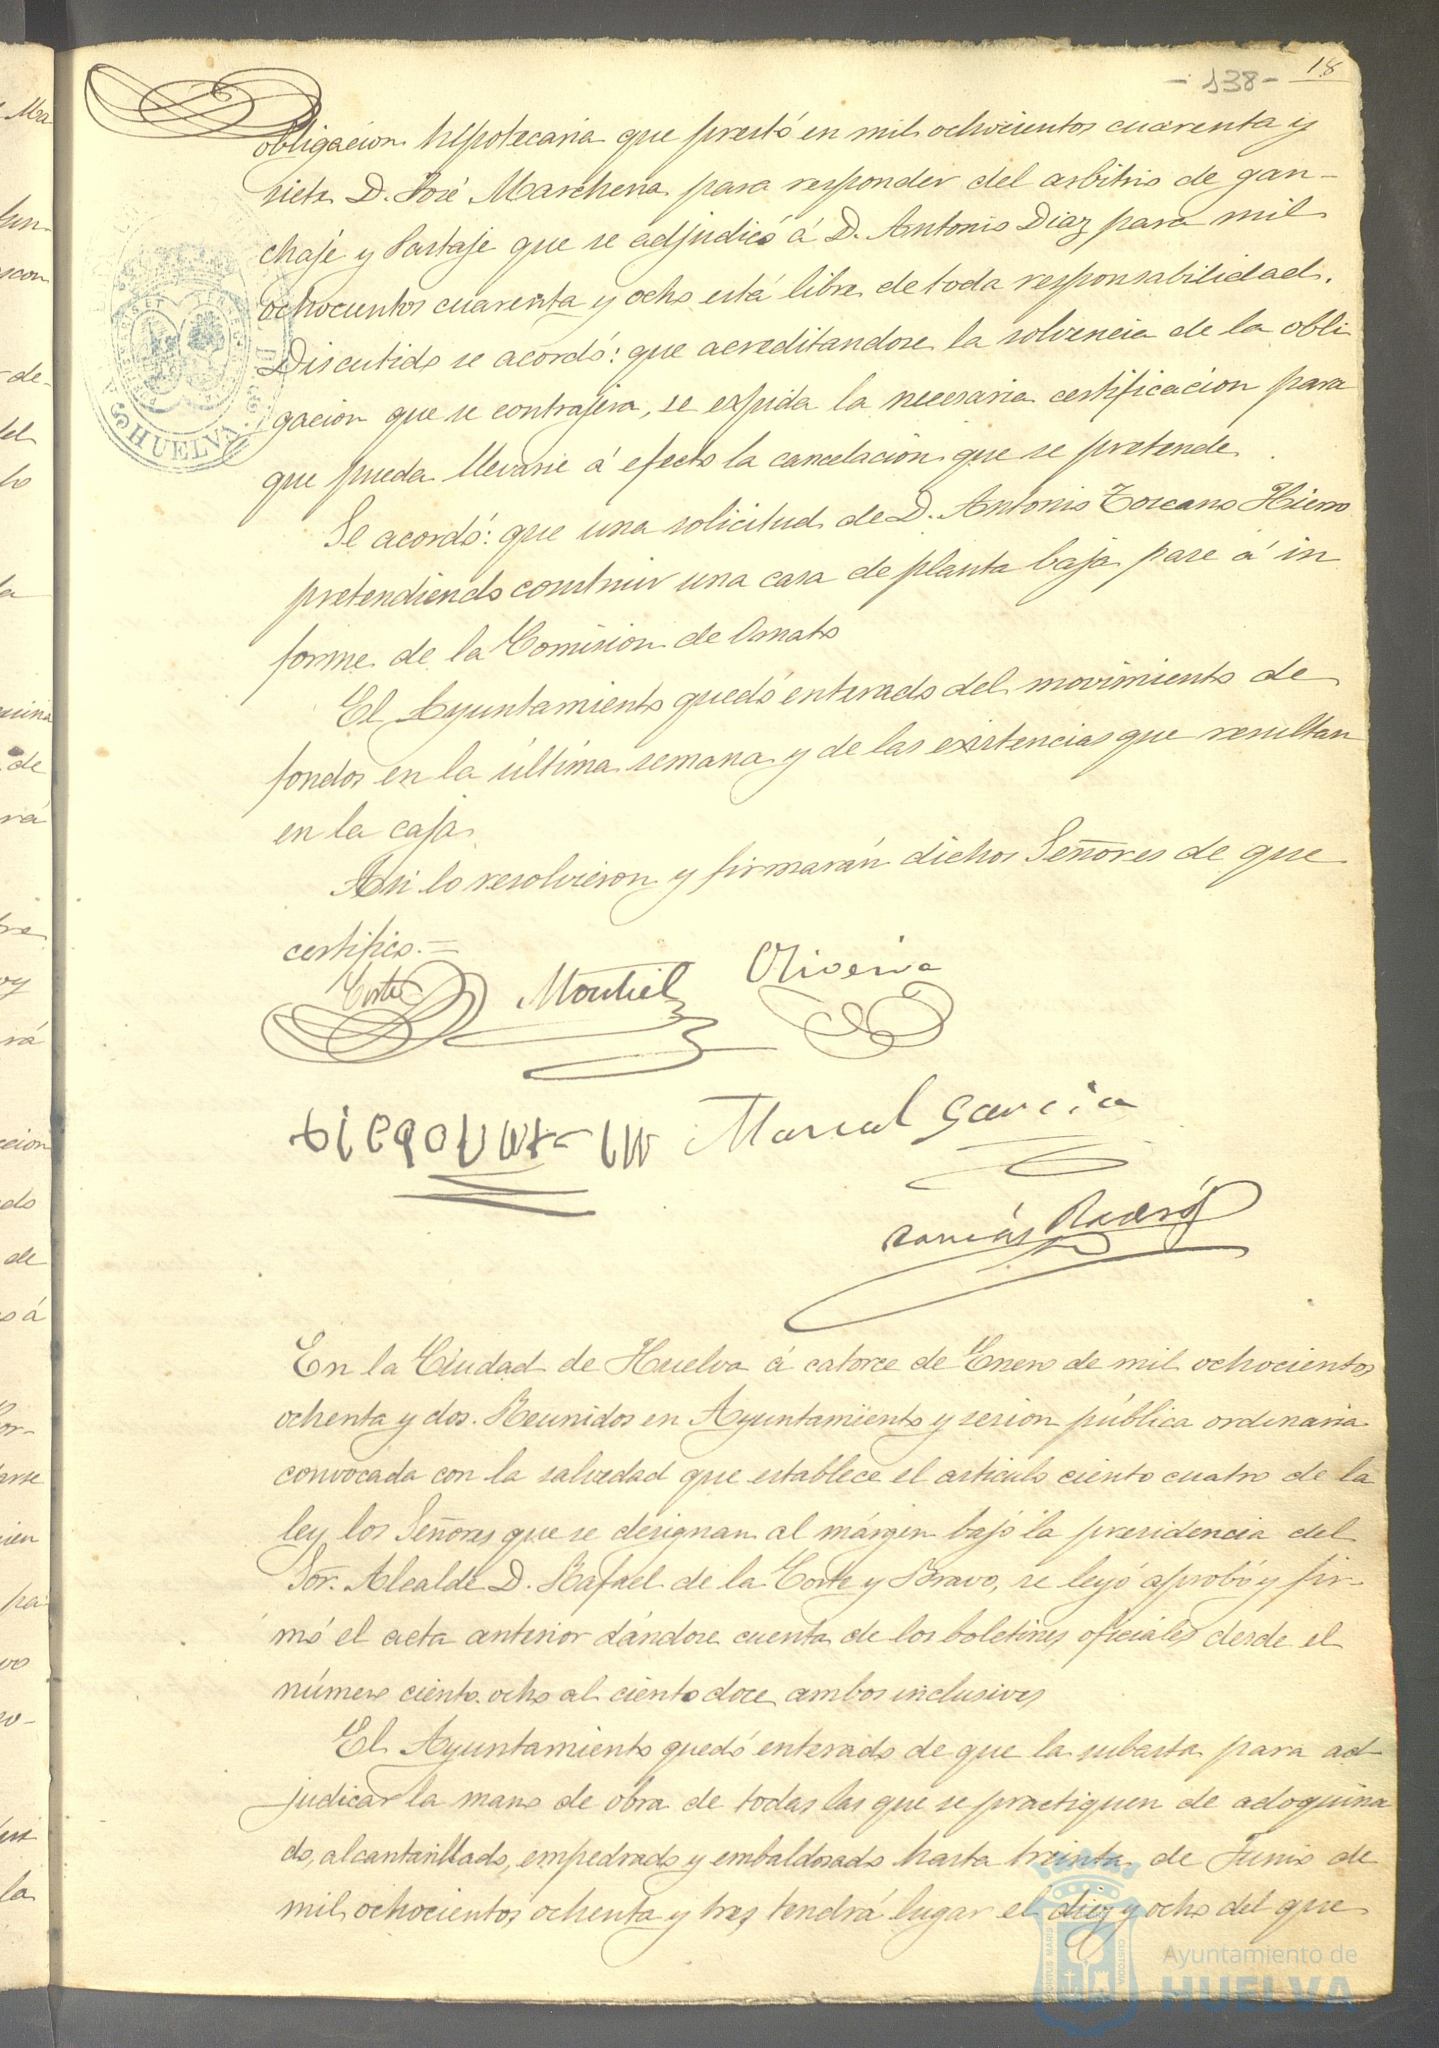 - 138 -
18
obligacion hipotecaria que prestó en mil ochocientos cuarenta y
siete D. José Marchena para responder del arbitrio de gan-
chaje y Partaje que se adjudicó á D. Antonio Diaz para mil
ochocientos cuarenta y ocho está libre de toda responsabilidad.
Discutido se acordó: que acreditandose la solvencia de la obli
gacion que se contrajera, se expida la necesaria certificacion para
que pueda llevarse á efecto la cancelacion que se pretende.
Se acordó: que una solicitud de D. Antonio Toscano Hierro
pretendiendo construir una casa de planta baja pase á in
forme de la Comision de Ornato
El Ayuntamiento quedó enterado del movimiento de
fondos en la última semana y de las existencias que resultan
en la caja.
Asi lo resolvieron y firmarán dichos Señores de que
certifico.=
Corte Montiel Oliveira
Marcal Garcia
En la Ciudad de Huelva á catorce de Enero de mil ochocientos
ochenta y dos. Reunidos en Ayuntamiento y sesion pública ordinaria
convocada con la salvedad que establece el articulo ciento cuatro de la
ley los Señores que se designan al márgen bajo la presidencia del
Sor. Alcalde D. Rafael de la Corte y Bravo, se leyó aprobó y fir-
mó el acta anterior dándose cuenta de los boletines oficiales desde el
número ciento ocho al ciento doce ambos inclusives
El Ayuntamiento quedó enterado de que la subasta para ad-
judicar la mano de obra de todas las que se practiquen de adoquina
do, alcantarillado, empedrado y embaldosado hasta treinta de Junio de
mil ochocientos ochenta y tres tendrá lugar el diez y ocho del que
HUELVA
Ayuntamiento de
HUELVA